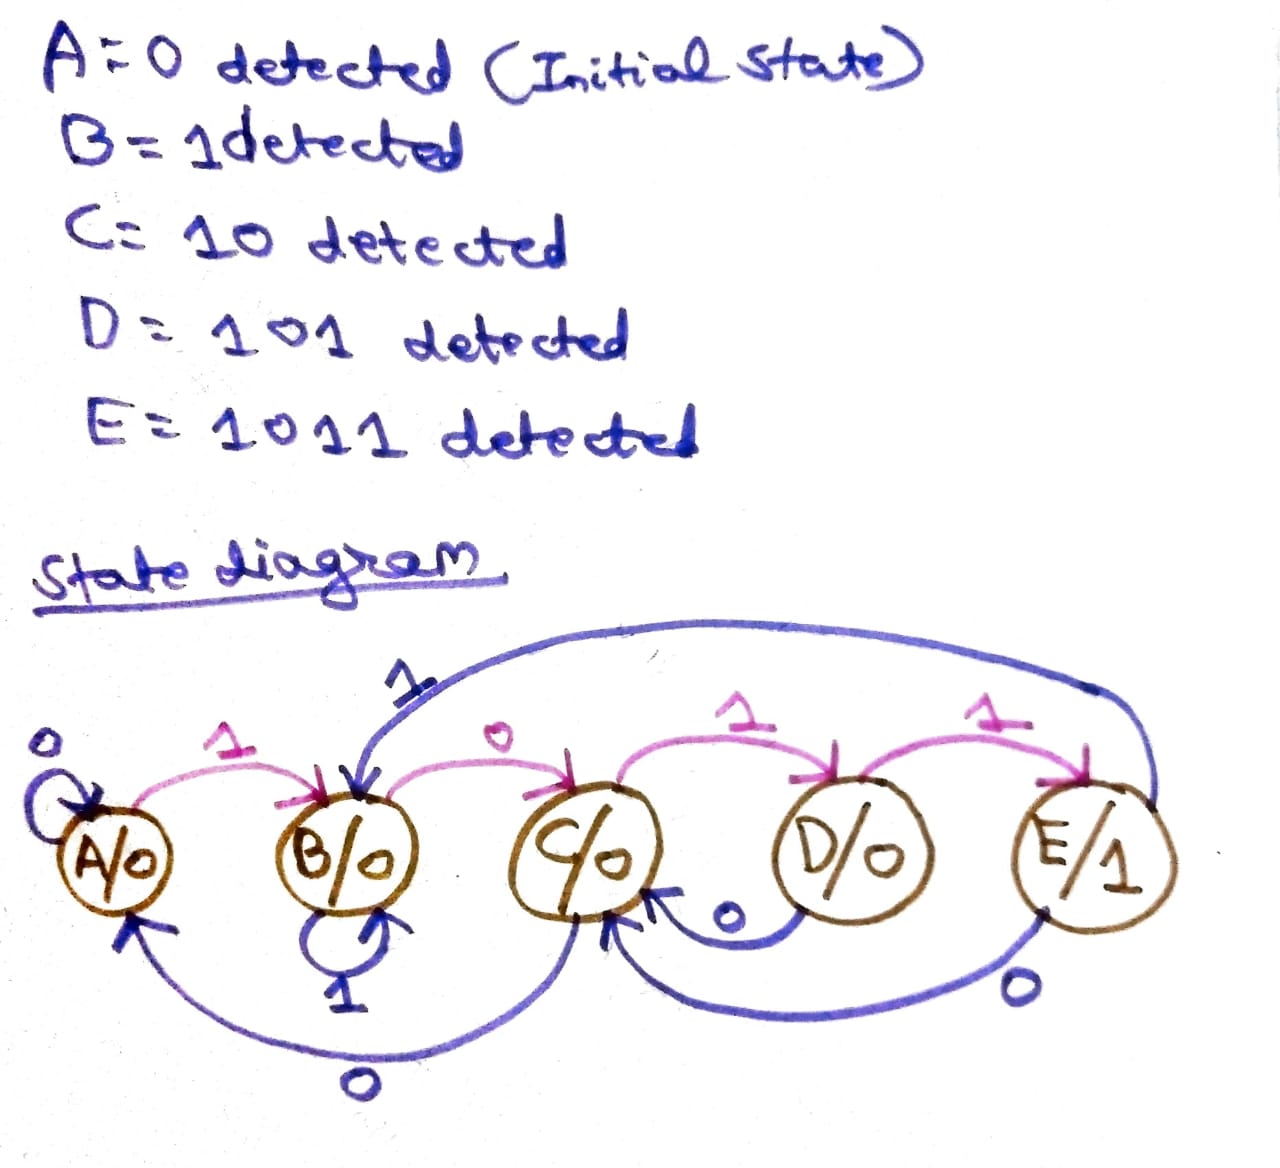 A = 0 detected (Initial state)
B = 1 detected
C = 10 detected
D = 101 detected
E = 1011 detected
State diagram
1
0 1 0 1 1
A/0 B/0 C/0 D/0 E/1
0
1 0
0